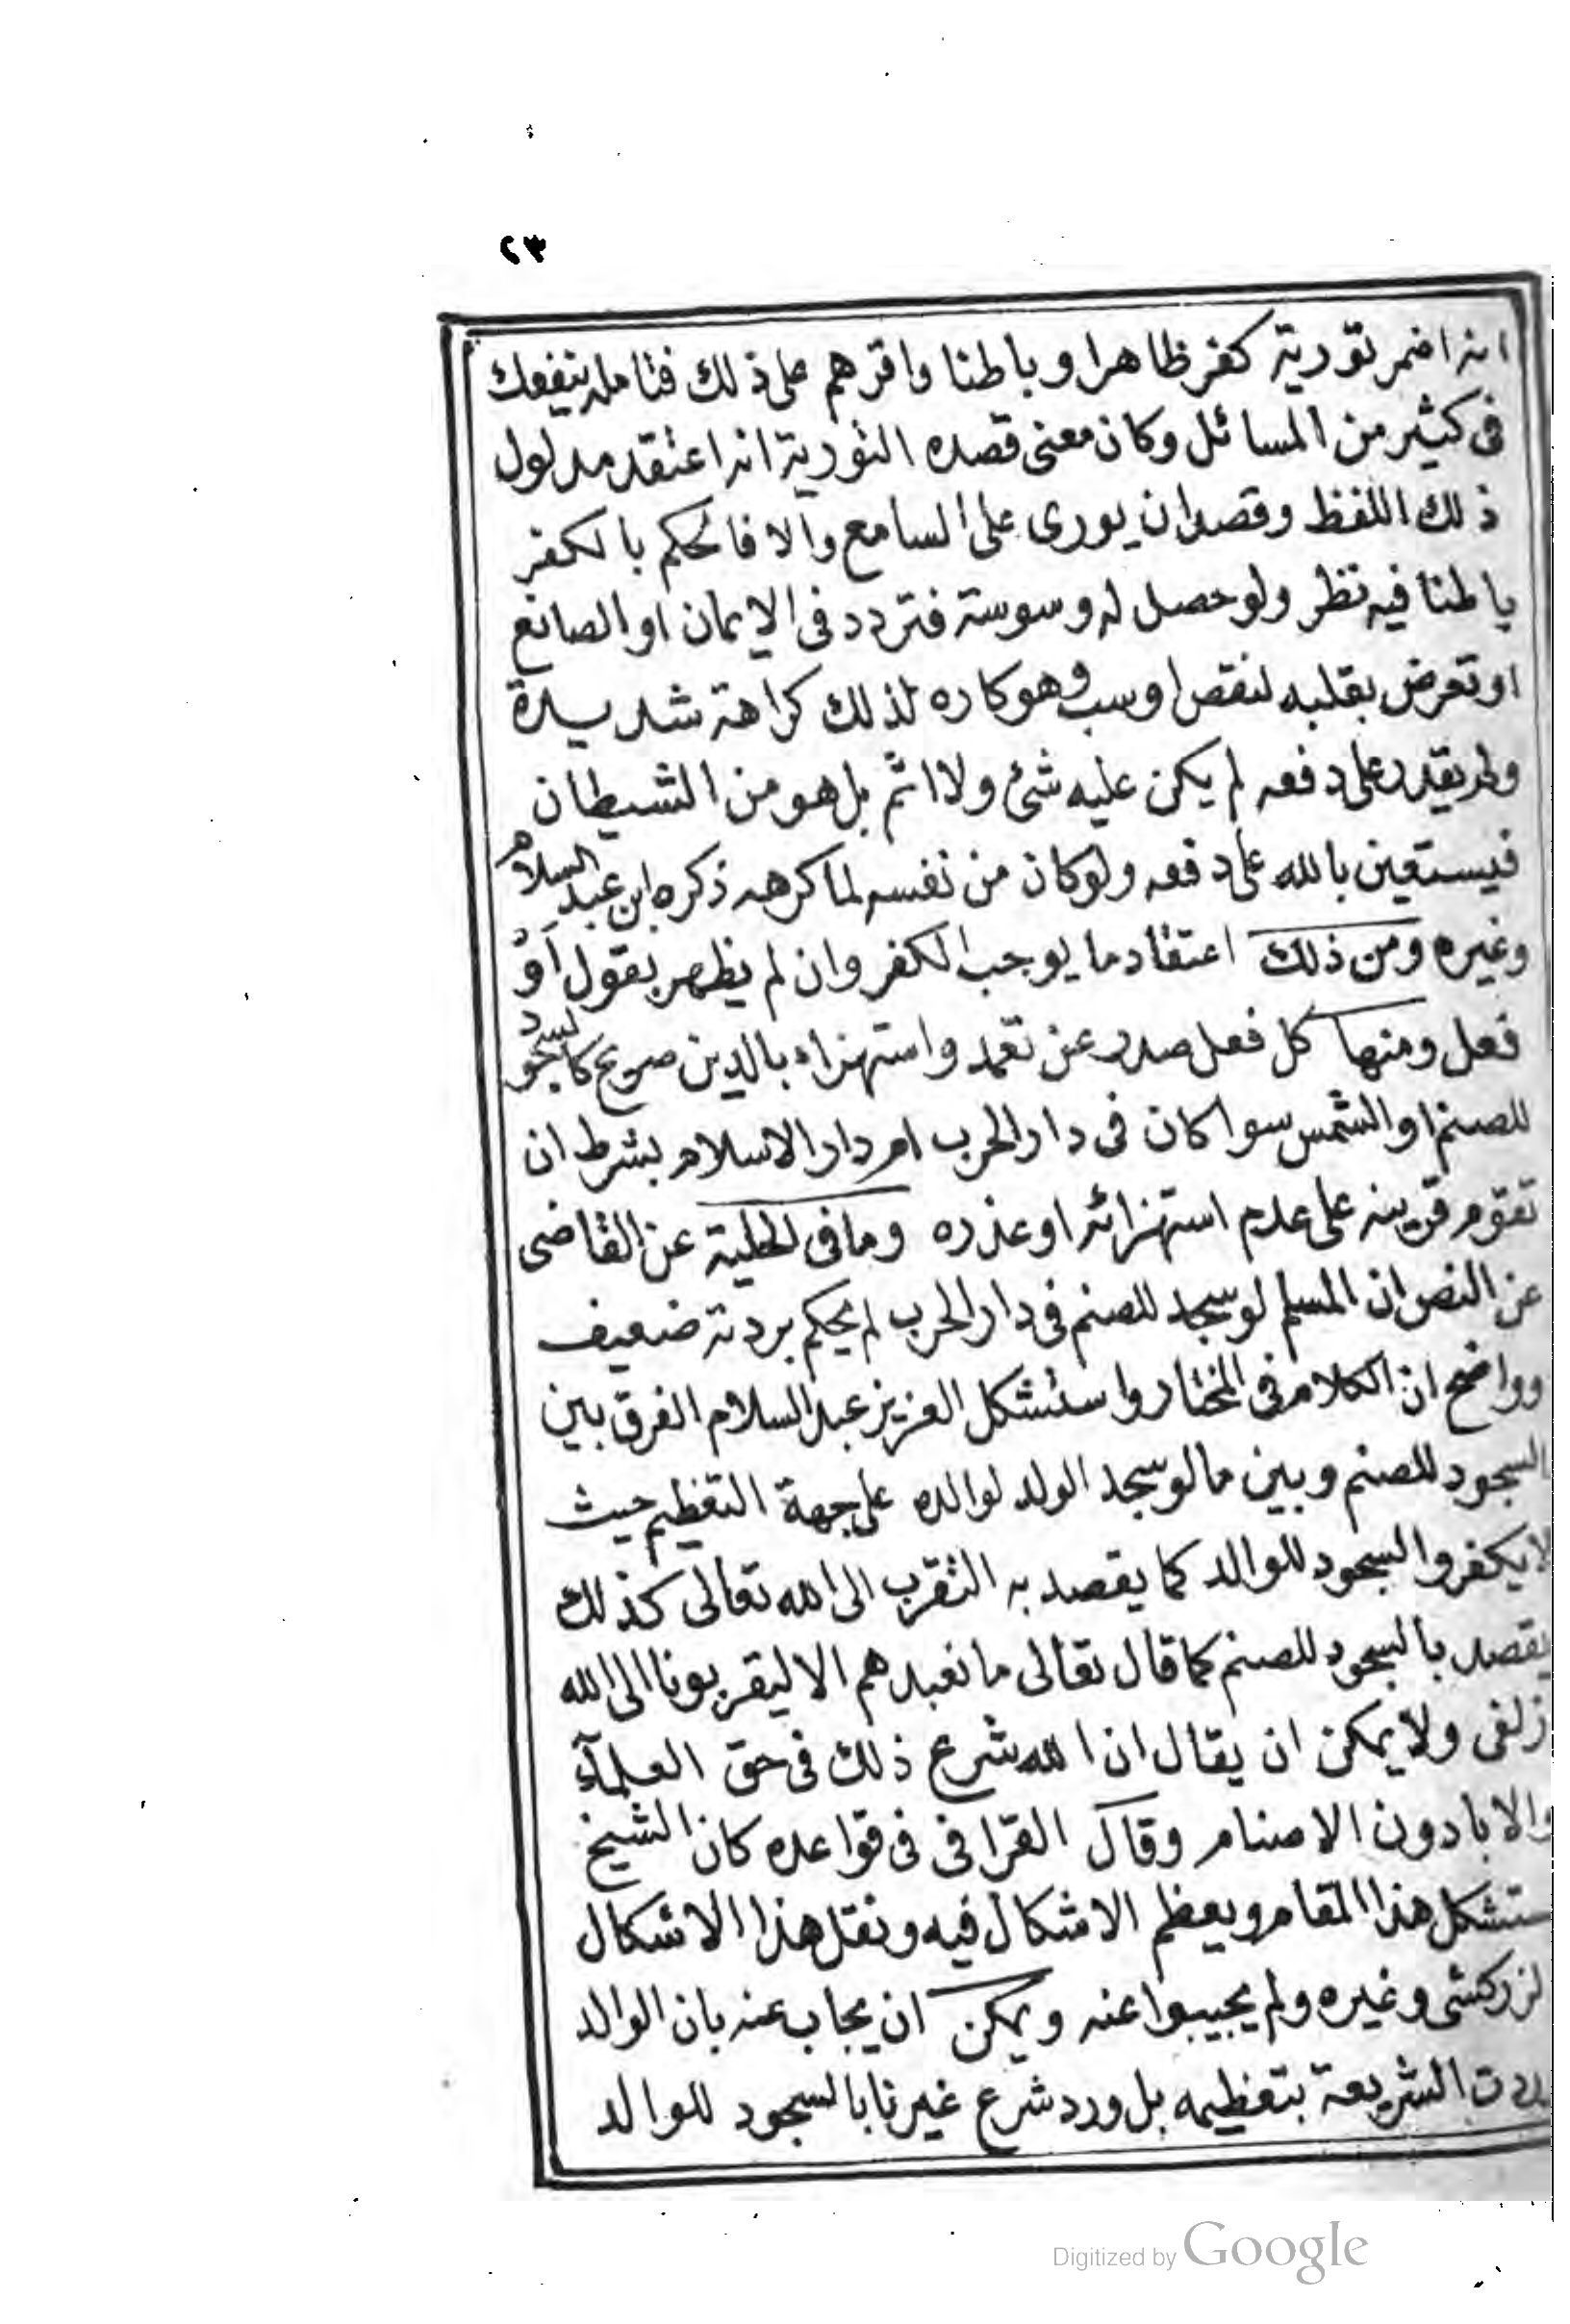 ٢٣
انه اضمر تورية كفر ظاهرا و باطنا واقرهم على ذلك فتامله ينفعك
فى كثير من المسائل وكان معنى قصده التورية انه اعتقد مدلول
ذلك اللفظ وقصد ان يورى على السامع والا فالحكم بالكفر
باطنا فيه نظر ولو حصل له وسوسة فتردد فى الايمان او الصانع
او تعرض بقلبه لنقص او سب وهو كاره لذلك كراهة شديدة
ولم يقدر على دفعه لم يكن عليه شئ ولا اثم بل هو من الشيطان
فيستعين بالله على دفعه ولو كان من نفسه لما كرهه ذكره ابن عبد السلام
وغيره ومن ذلك اعتقاد ما يوجب الكفر وان لم يظهر بقول او
فعل ومنها كل فعل صدر عن تعمد واستهزاء بالدين صريح كالسجود
للصنم او الشمس سوا كان فى دار الحرب ام دار الاسلام بشرط ان
تقوم قرينه على عدم استهزائه او عذره وما فى الحلية عن القاضى
عن النص ان المسلم لو سجد للصنم فى دار الحرب لم يحكم بردته ضعيف
وواضح ان الكلام فى المختار واستشكل العز بن عبد السلام الفرق بين
السجود للصنم وبين ما لو سجد الولد لوالده على جهة التعظيم حيث
لا يكفر والسجود للوالد كما يقصد به التقرب الى الله تعالى كذلك
يقصد بالسجود للصنم كما قال تعالى ما نعبدهم الا ليقربونا الى الله
زلفى ولا يمكن ان يقال ان الله شرع ذلك فى حق العلمآء
والابا دون الاصنام وقال القرافى فى قواعده كان الشيخ
ستشكل هذا المقام ويعظم الاشكال فيه ونقل هذا الاشكال
لزركشى وغيره ولم يجيبوا عنه ويمكن ان يجاب عنه بان الوالد
ردت الشريعة بتعظيمه بل ورد شرع غيرنا بالسجود للوالد
Digitized by Google